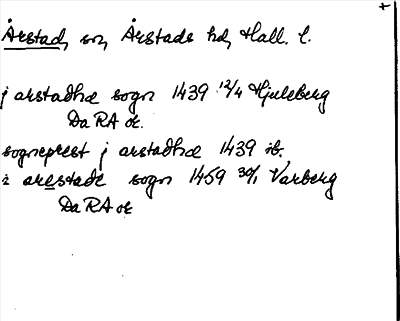 +
Årstad, sn, Årstads hd, Hall. l.
j arstadhæ sogn 1439 12/4 Hjuleberg
DaRA or.
sogneprest j arstadhæ 1439 ib.
i arestade sogn 1459 30/1 Varberg
DaRA or